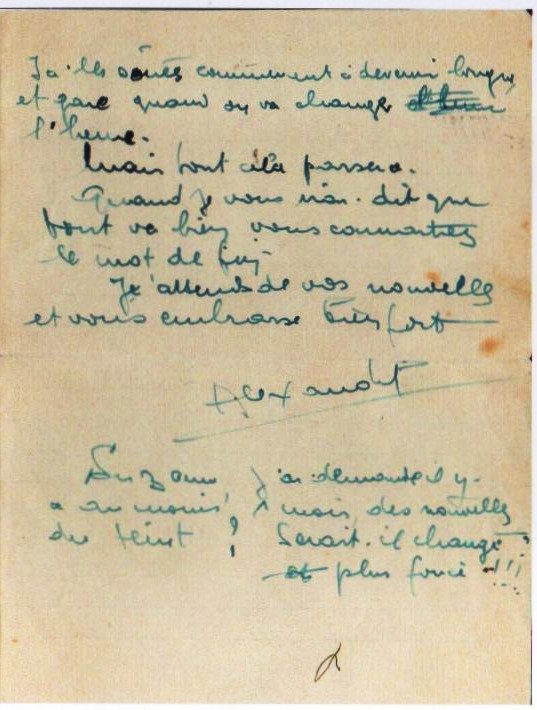 Ici les soirées commencent à devenir longues
et gare quand on va changer
l'heure.
Mais tout cela passera.
Quand je vous aurai dit que
tout va bien vous connaitrez
le mot de fin
J'attends de vos nouvelles
et vous embrasse bien fort
Alexandre
Suzanne J'ai demandé il y
a au moins 2 mois, des nouvelles
du teint ? Serait-il changé ?
plus foncé !!!